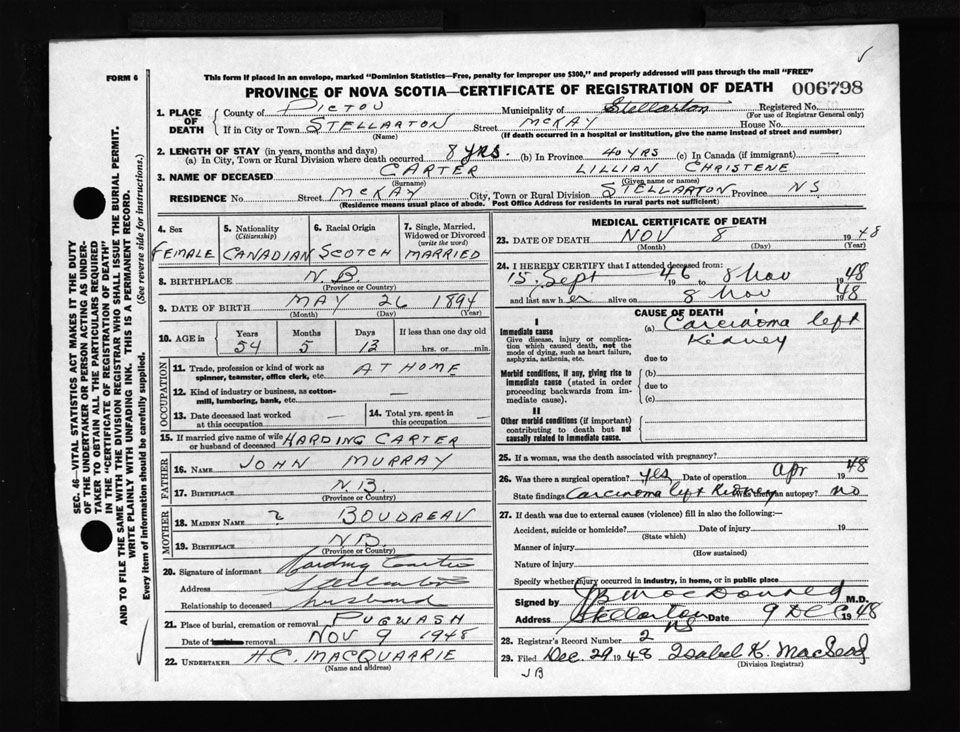 FORM 6
This form if placed in an envelope, marked "Dominion Statistics—Free, penalty for improper use $300," and properly addressed will pass through the mail "FREE"
PROVINCE OF NOVA SCOTIA—CERTIFICATE OF REGISTRATION OF DEATH 006798
1. PLACE OF DEATH County of PICTOU Municipality of Stellarton Registered No.
(For use of Registrar General only)
If in City or Town STELLARTON Street MCKAY House No.
(Name) (If death occurred in a hospital or institution, give the name instead of street and number)
2. LENGTH OF STAY (in years, months and days)
(a) In City, Town or Rural Division where death occurred 8 YRS. (b) In Province 40 YRS (c) In Canada (if immigrant) —
3. NAME OF DECEASED CARTER LILLIAN CHRISTENE
(Surname) (Given name or names)
RESIDENCE No. Street MCKAY City, Town or Rural Division STELLARTON Province NS
(Residence means usual place of abode. Post Office Address for residents in rural parts not sufficient)
4. Sex 5. Nationality (Citizenship) 6. Racial Origin 7. Single, Married, Widowed or Divorced (write the word)
FEMALE CANADIAN SCOTCH MARRIED
8. BIRTHPLACE N.B.
(Province or Country)
9. DATE OF BIRTH MAY 26 1894
(Month) (Day) (Year)
10. AGE in Years Months Days If less than one day old
54 5 13 hrs. or min.
OCCUPATION
11. Trade, profession or kind of work as spinner, teamster, office clerk, etc. AT HOME
12. Kind of industry or business, as cotton-mill, lumbering, bank, etc. —
13. Date deceased last worked at this occupation — 14. Total yrs. spent in this occupation —
15. If married give name of wife or husband of deceased HARDING CARTER
FATHER
16. NAME JOHN MURRAY
17. BIRTHPLACE N.B.
(Province or Country)
MOTHER
18. MAIDEN NAME ? BOUDREAU
19. BIRTHPLACE N.B.
(Province or Country)
20. Signature of informant Harding Carter
Address Stellarton
Relationship to deceased husband
21. Place of burial, cremation or removal PUGWASH
Date of removal NOV 9 1948
22. UNDERTAKER H.C. MACQUARRIE
(Name and address)
MEDICAL CERTIFICATE OF DEATH
23. DATE OF DEATH NOV 8 1948
(Month) (Day) (Year)
24. I HEREBY CERTIFY that I attended deceased from:
15. Sept 1946 to 8 Nov 1948
and last saw her alive on 8 Nov 1948
CAUSE OF DEATH
I
Immediate cause (a) Carcinoma left Kidney
Give disease, injury or complication which caused death, not the mode of dying, such as heart failure, asphyxia, asthenia, etc.
due to
Morbid conditions, if any, giving rise to immediate cause (stated in order proceeding backwards from immediate cause).
(b)
due to
(c)
II
Other morbid conditions (if important) contributing to death but not causally related to immediate cause.
25. If a woman, was the death associated with pregnancy?
26. Was there a surgical operation? yes Date of operation Apr 1948
State findings Carcinoma left Kidney Was there an autopsy? no
27. If death was due to external causes (violence) fill in also the following:—
Accident, suicide or homicide? Date of injury 19
(State which)
Manner of injury
(How sustained)
Nature of injury
Specify whether injury occurred in industry, in home, or in public place
Signed by JB MacDonald M.D.
Address Stellarton NS Date 9 DEC 1948
28. Registrar's Record Number 2
29. Filed Dec. 29 1948 Isabel K. MacLeod
(Division Registrar)
JB
SEC. 46—VITAL STATISTICS ACT MAKES IT THE DUTY
OF THE UNDERTAKER OR PERSON ACTING AS UNDER-
TAKER TO OBTAIN ALL THE PARTICULARS REQUIRED
IN THE "CERTIFICATE OF REGISTRATION OF DEATH"
AND TO FILE THE SAME WITH THE DIVISION REGISTRAR WHO SHALL ISSUE THE BURIAL PERMIT.
WRITE PLAINLY WITH UNFADING INK. THIS IS A PERMANENT RECORD.
Every item of information should be carefully supplied. (See reverse side for instructions.)